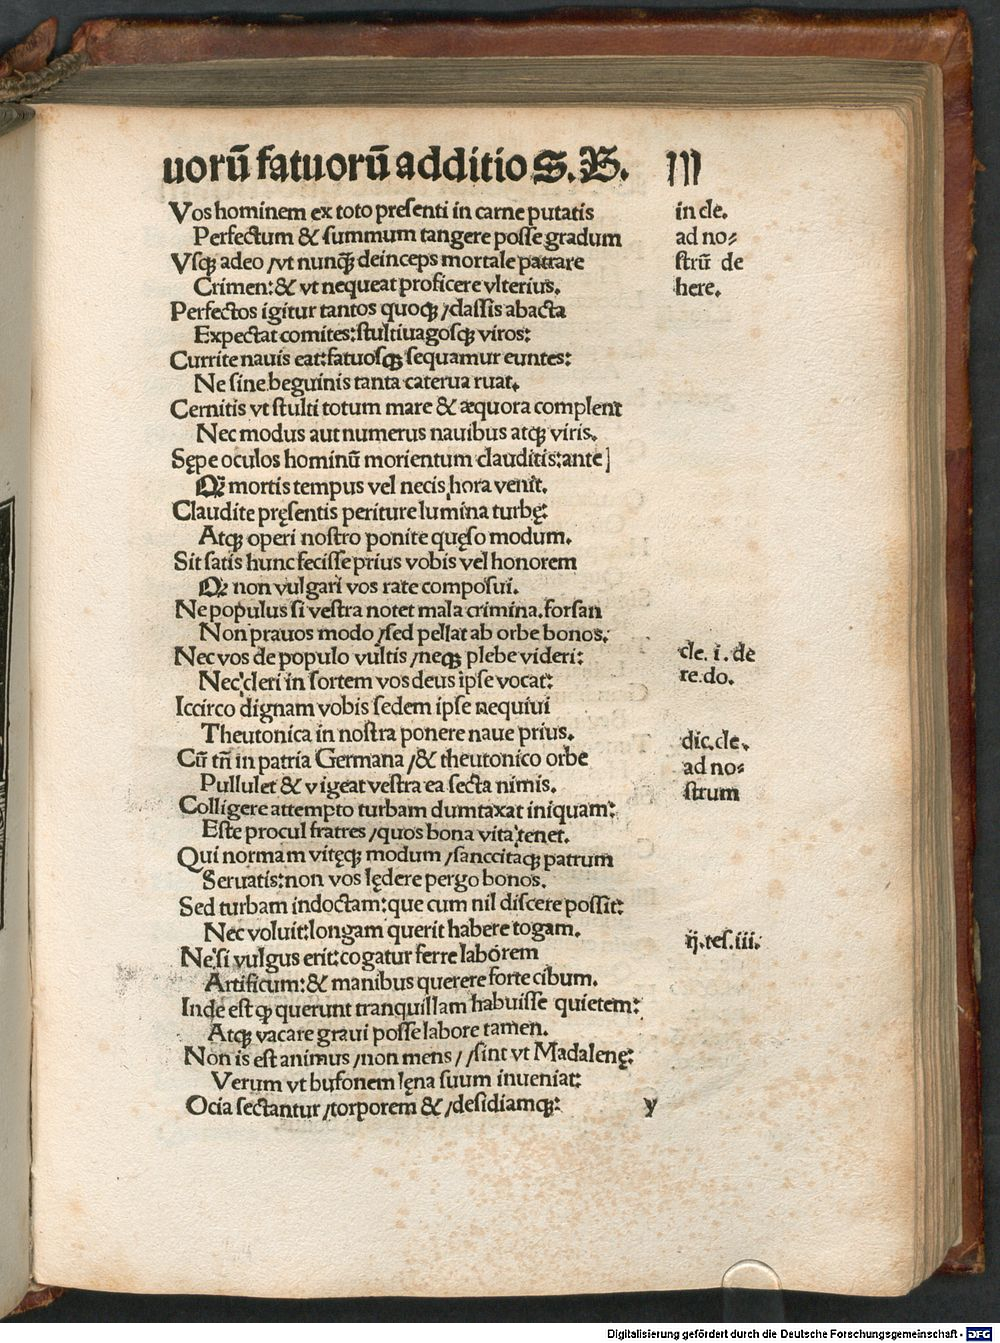 uorū fatuorū additio S. B. III
Vos hominem ex toto presenti in carne putatis
Perfectum & summum tangere posse gradum
Vsqꝫ adeo / vt nunqꝫ̄ deinceps mortale patrare
Crimen: & vt nequeat proficere vlterius.
Perfectos igitur tantos quoqꝫ / classis abacta
Expectat comites: stultiuagosqꝫ viros:
Currite nauis eat: fatuosqꝫ sequamur euntes:
Ne sine beguinis tanta caterua ruat.
Cernitis vt stulti totum mare & æquora complent
Nec modus aut numerus nauibus atqꝫ viris.
Sępe oculos hominū morientum clauditis: ante]
Qꝫ̄ mortis tempus vel necis hora venit.
Claudite pręsentis periture lumina turbę:
Atqꝫ operi nostro ponite quęso modum.
Sit satis hunc fecisse prius vobis vel honorem
Qꝫ non vulgari vos rate composui.
Ne populus si vestra notet mala crimina. forsan
Non prauos modo / sed pellat ab orbe bonos.
Nec vos de populo vultis / neqꝫ plebe videri:
Nec cleri in sortem vos deus ipse vocat:
Iccirco dignam vobis sedem ipse nequiui
Theutonica in nostra ponere naue prius.
Cū tn̄ in patria Germana / & theutonico orbe
Pullulet & vigeat vestra ea secta nimis.
Colligere attempto turbam dumtaxat iniquam:
Este procul fratres / quos bona vita tenet.
Qui normam vitęqꝫ modum / sanccitaqꝫ patrum
Seruatis: non vos lędere pergo bonos.
Sed turbam indoctam: que cum nil discere possit:
Nec voluit: longam querit habere togam.
Ne si vulgus erit: cogatur ferre laborem
Artificum: & manibus querere forte cibum.
Inde est ꝙ querunt tranquillam habuisse quietem:
Atqꝫ vacare graui posse labore tamen.
Non is est animus / non mens / / sint vt Madalenę:
Verum vt bufonem lęna suum inueniat:
Ocia sectantur / torporem & / desidiamqꝫ:
y
in cle.
ad no⸗
strū de
here.
cle. i. de
re. do.
dic. cle.
ad no⸗
strum
ij. tes. iii.
Digitalisierung gefördert durch die Deutsche Forschungsgemeinschaft - DFG